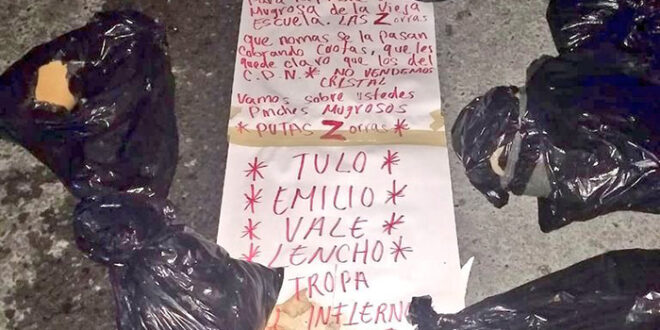 Mugrosa de la Vieja
Escuela. LAS Zorras
que nomas se la pasan
Cobrando Cootas, que les
quede claro que los del
C.P.N.* NO VENDEMOS
CRISTAL
Vamos sobre ustedes
Pinches Mugrosos
* PUTAS Zorras *
* TULO *
* EMILIO *
* VALE *
* LENCHO *
TROPA
INFIERNO